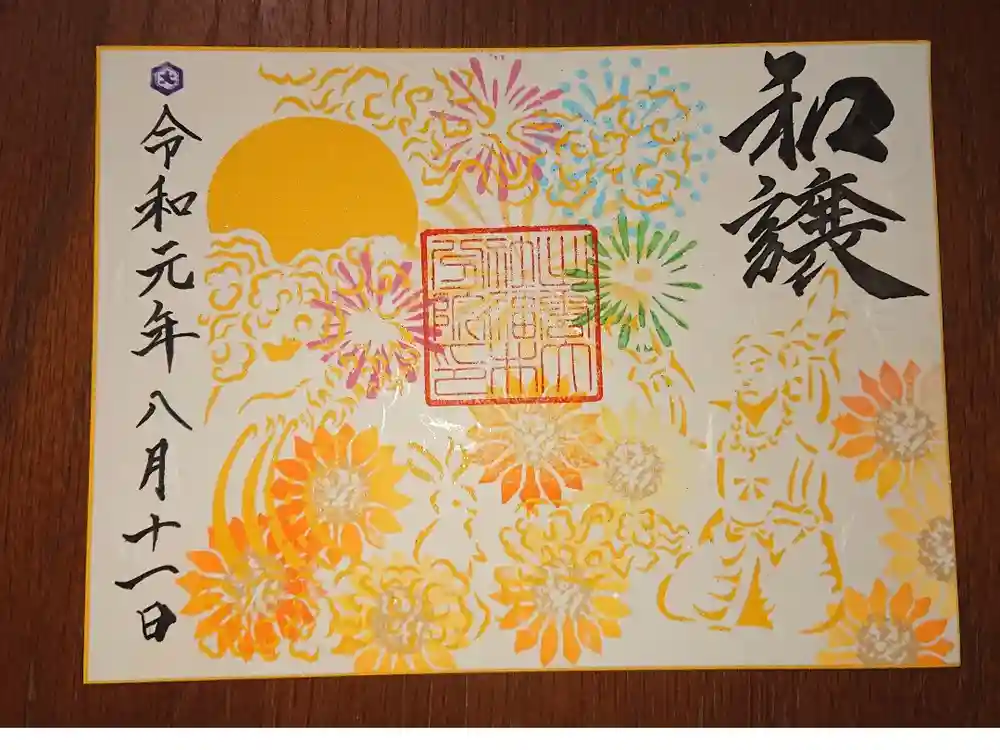 和譲
令和元年八月十一日